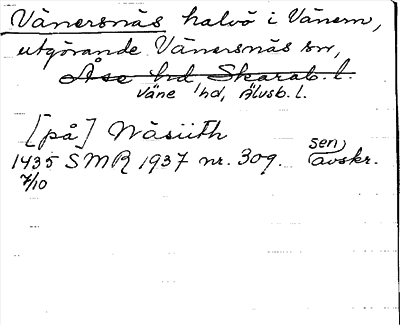 Vänersnäs halvö i Vänern,
utgörande Vänersnäs sn,
Åse hd Skarab. l.
Väne hd, Älvsb. l.
[på] Näsiith
1435 SMR 1937 nr. 309. sen avskr.
7/10